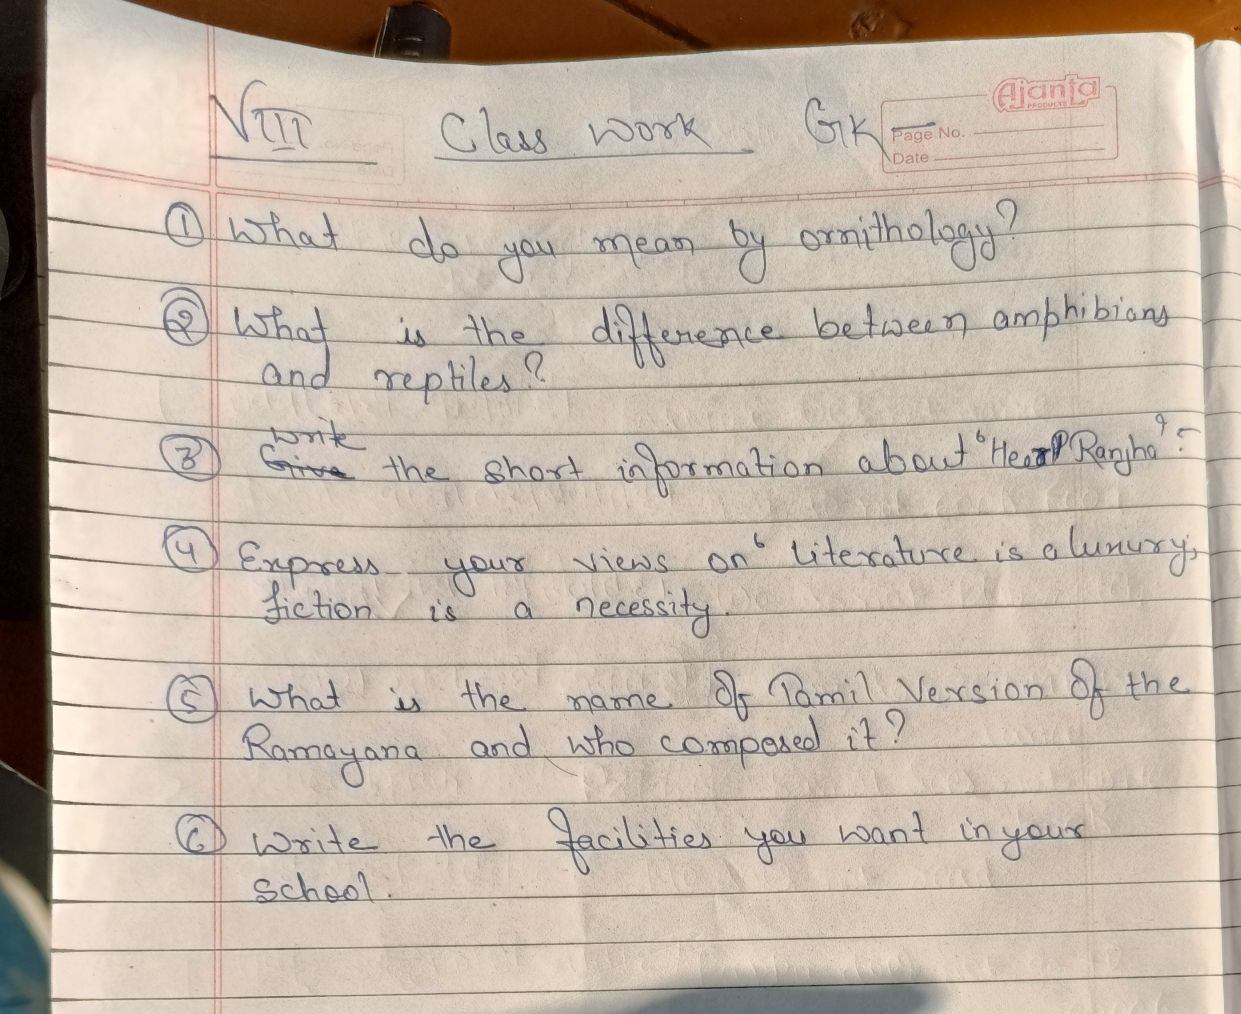 VIII Class work GK
Ajanta
PRODUCTS
Page No.
Date
① What do you mean by ornithology?
② What is the difference between amphibians
and reptiles?
write
③ Give the short information about 'Heer Ranjha'?
④ Express your views on 'Literature is a luxury,
fiction is a necessity.
⑤ What is the name of Tamil Version of the
Ramayana and who composed it?
⑥ Write the facilities you want in your
school.